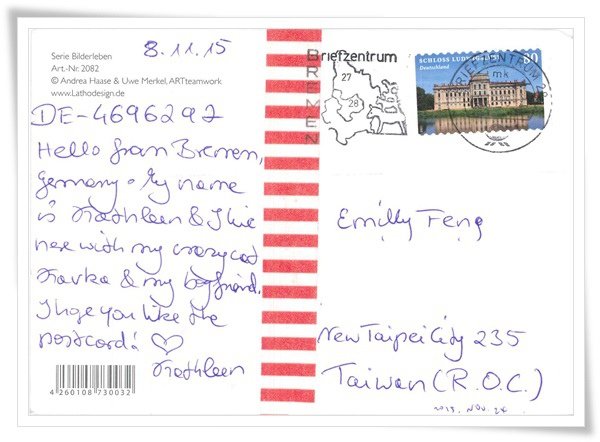 8.11.15
Serie Bilderleben
Art.-Nr. 2082
© Andrea Haase & Uwe Merkel, ARTteamwork
www.Lathodesign.de
DE-4696297
Hello from Bremen,
Germany. My name
is Kathleen & I live
here with my crazy cat
& my boyfriend.
I hope you like the
postcard! ♡
Kathleen
4 260108 730032
Briefzentrum
BREMEN
27
28
SCHLOSS LUDWIGSLUST
Deutschland
80
BRIEFZENTRUM
mk
Emilly Feng
New Taipei City 235
Taiwan (R.O.C.)
2015. NOV. 24